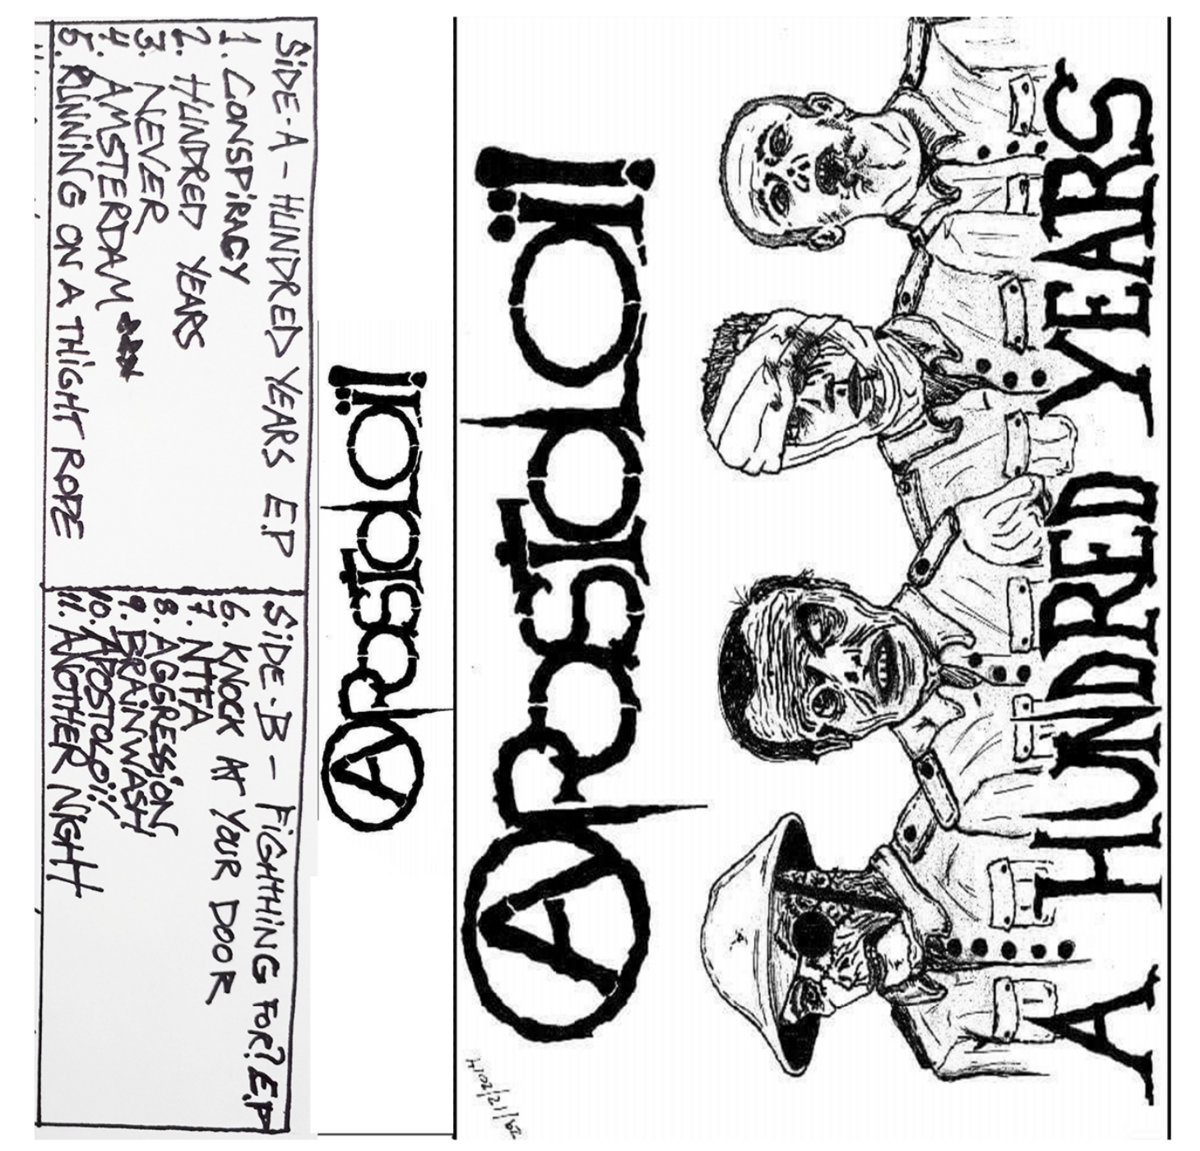 SIDE-A - HUNDRED YEARS E.P
1. CONSPIRACY
2. HUNDRED YEARS
3. NEVER
4. AMSTERDAM
5. RUNNING ON A THIGHT ROPE
SIDE-B - FIGHTHING FOR? E.P
6. KNOCK AT YOUR DOOR
7. NTFA
8. AGGRESSION
9. BRAINWASH
10. APOSTOLOI!!
11. ANOTHER NIGHT
APOSTOLOI!
APOSTOLOI!
A HUNDRED YEARS
29/12/2014